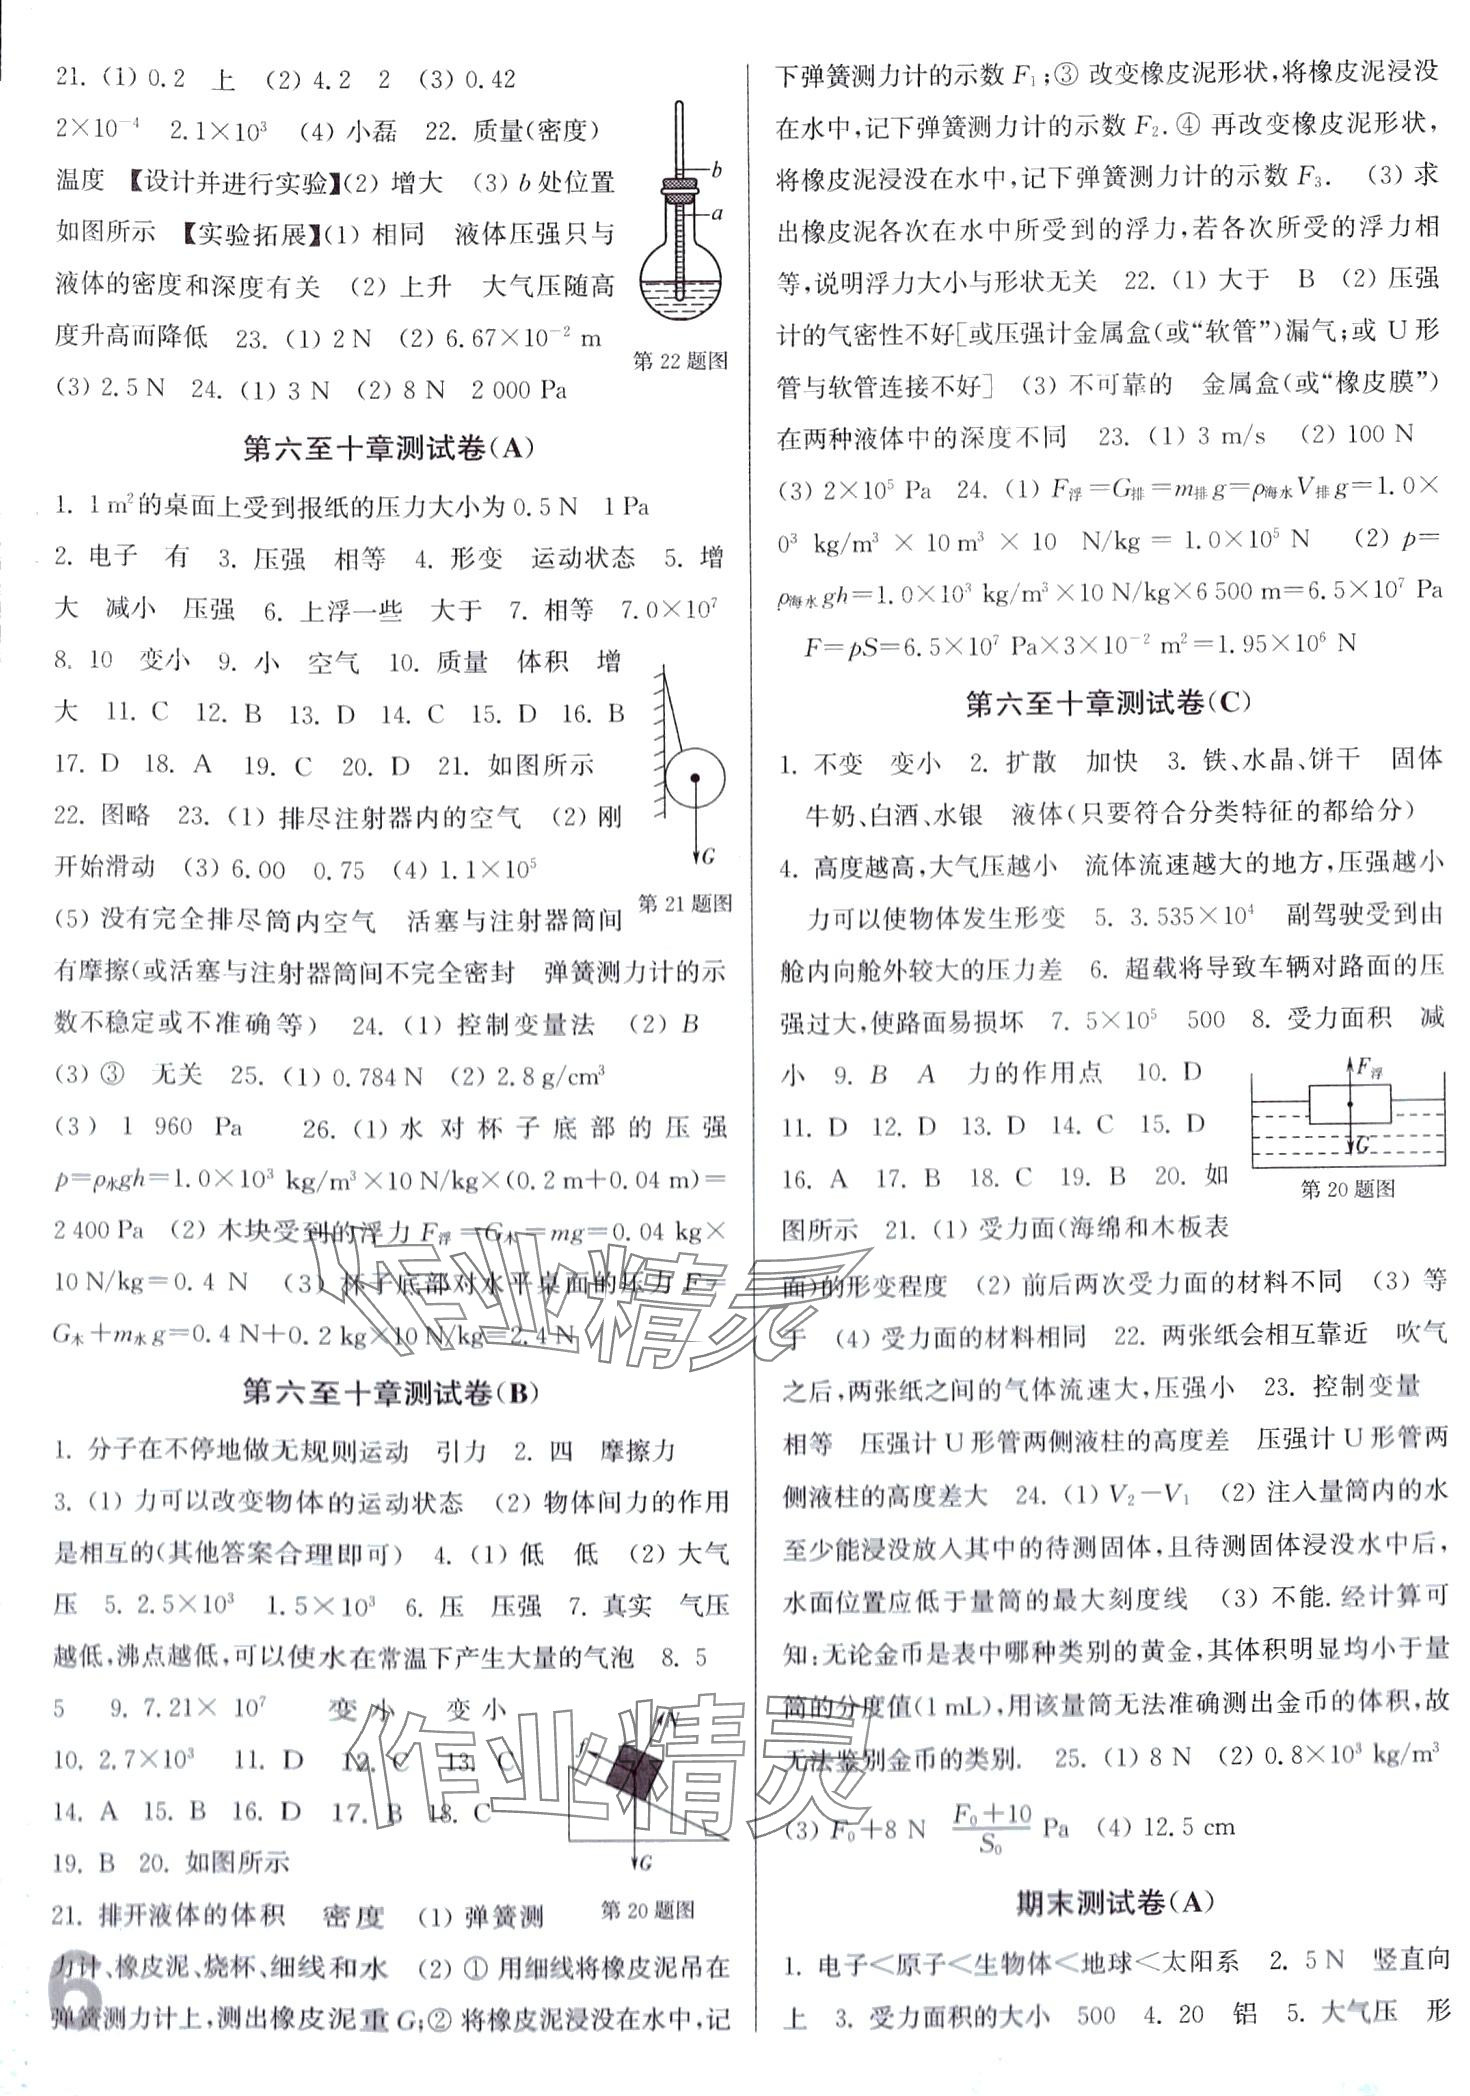 21. (1) 0.2 上 (2) 4.2 2 (3) 0.42
2×10⁻⁴ 2.1×10³ (4) 小磊 22. 质量(密度)
温度 【设计并进行实验】(2) 增大 (3) b处位置
如图所示 【实验拓展】(1) 相同 液体压强只与
液体的密度和深度有关 (2) 上升 大气压随高
度升高而降低 23. (1) 2 N (2) 6.67×10⁻² m
(3) 2.5 N 24. (1) 3 N (2) 8 N 2 000 Pa
b
a
第22题图
第六至十章测试卷(A)
1. 1 m²的桌面上受到报纸的压力大小为0.5 N 1 Pa
2. 电子 有 3. 压强 相等 4. 形变 运动状态 5. 增
大 减小 压强 6. 上浮一些 大于 7. 相等 7.0×10⁷
8. 10 变小 9. 小 空气 10. 质量 体积 增
大 11. C 12. B 13. D 14. C 15. D 16. B
17. D 18. A 19. C 20. D 21. 如图所示
22. 图略 23. (1) 排尽注射器内的空气 (2) 刚
开始滑动 (3) 6.00 0.75 (4) 1.1×10⁵
G
第21题图
(5) 没有完全排尽筒内空气 活塞与注射器筒间
有摩擦(或活塞与注射器筒间不完全密封 弹簧测力计的示
数不稳定或不准确等) 24. (1) 控制变量法 (2) B
(3) ③ 无关 25. (1) 0.784 N (2) 2.8 g/cm³
(3) 1 960 Pa 26. (1) 水对杯子底部的压强
p=ρ水gh=1.0×10³ kg/m³×10 N/kg×(0.2 m+0.04 m)=
2 400 Pa (2) 木块受到的浮力 F浮=G木=mg=0.04 kg×
10 N/kg=0.4 N (3) 杯子底部对水平桌面的压力 F=
G木+m水g=0.4 N+0.2 kg×10 N/kg=2.4 N
第六至十章测试卷(B)
1. 分子在不停地做无规则运动 引力 2. 四 摩擦力
3. (1) 力可以改变物体的运动状态 (2) 物体间力的作用
是相互的(其他答案合理即可) 4. (1) 低 低 (2) 大气
压 5. 2.5×10³ 1.5×10³ 6. 压 压强 7. 真实 气压
越低,沸点越低,可以使水在常温下产生大量的气泡 8. 5
5 9. 7.21×10⁷ 变小 变小
10. 2.7×10³ 11. D 12. C 13. C
14. A 15. B 16. D 17. B 18. C
19. B 20. 如图所示
N
f
G
第20题图
21. 排开液体的体积 密度 (1) 弹簧测
力计、橡皮泥、烧杯、细线和水 (2) ① 用细线将橡皮泥吊在
弹簧测力计上,测出橡皮泥重G;② 将橡皮泥浸没在水中,记
6
下弹簧测力计的示数F₁;③ 改变橡皮泥形状,将橡皮泥浸没
在水中,记下弹簧测力计的示数F₂.④ 再改变橡皮泥形状,
将橡皮泥浸没在水中,记下弹簧测力计的示数F₃. (3) 求
出橡皮泥各次在水中所受到的浮力,若各次所受的浮力相
等,说明浮力大小与形状无关 22. (1) 大于 B (2) 压强
计的气密性不好[或压强计金属盒(或“软管”)漏气;或 U 形
管与软管连接不好] (3) 不可靠的 金属盒(或“橡皮膜”)
在两种液体中的深度不同 23. (1) 3 m/s (2) 100 N
(3) 2×10⁵ Pa 24. (1) F浮=G排=m排g=ρ海水V排g=1.0×
0³ kg/m³ × 10 m³ × 10 N/kg = 1.0×10⁵ N (2) p=
ρ海水gh=1.0×10³ kg/m³×10 N/kg×6 500 m=6.5×10⁷ Pa
F=pS=6.5×10⁷ Pa×3×10⁻² m²=1.95×10⁶ N
第六至十章测试卷(C)
1. 不变 变小 2. 扩散 加快 3. 铁、水晶、饼干 固体
牛奶、白酒、水银 液体(只要符合分类特征的都给分)
4. 高度越高,大气压越小 流体流速越大的地方,压强越小
力可以使物体发生形变 5. 3.535×10⁴ 副驾驶受到由
舱内向舱外较大的压力差 6. 超载将导致车辆对路面的压
强过大,使路面易损坏 7. 5×10⁵ 500 8. 受力面积 减
小 9. B A 力的作用点 10. D
11. D 12. D 13. D 14. C 15. D
16. A 17. B 18. C 19. B 20. 如
F浮
G
第20题图
图所示 21. (1) 受力面(海绵和木板表
面)的形变程度 (2) 前后两次受力面的材料不同 (3) 等
于 (4) 受力面的材料相同 22. 两张纸会相互靠近 吹气
之后,两张纸之间的气体流速大,压强小 23. 控制变量
相等 压强计 U 形管两侧液柱的高度差 压强计 U 形管两
侧液柱的高度差大 24. (1) V₂−V₁ (2) 注入量筒内的水
至少能浸没放入其中的待测固体,且待测固体浸没水中后,
水面位置应低于量筒的最大刻度线 (3) 不能.经计算可
知:无论金币是表中哪种类别的黄金,其体积明显均小于量
筒的分度值(1 mL),用该量筒无法准确测出金币的体积,故
无法鉴别金币的类别. 25. (1) 8 N (2) 0.8×10³ kg/m³
(3) F₀+8 N (F₀+10)/S₀ Pa (4) 12.5 cm
期末测试卷(A)
1. 电子<原子<生物体<地球<太阳系 2. 5 N 竖直向
上 3. 受力面积的大小 500 4. 20 铝 5. 大气压 形
作业精灵
作业精灵